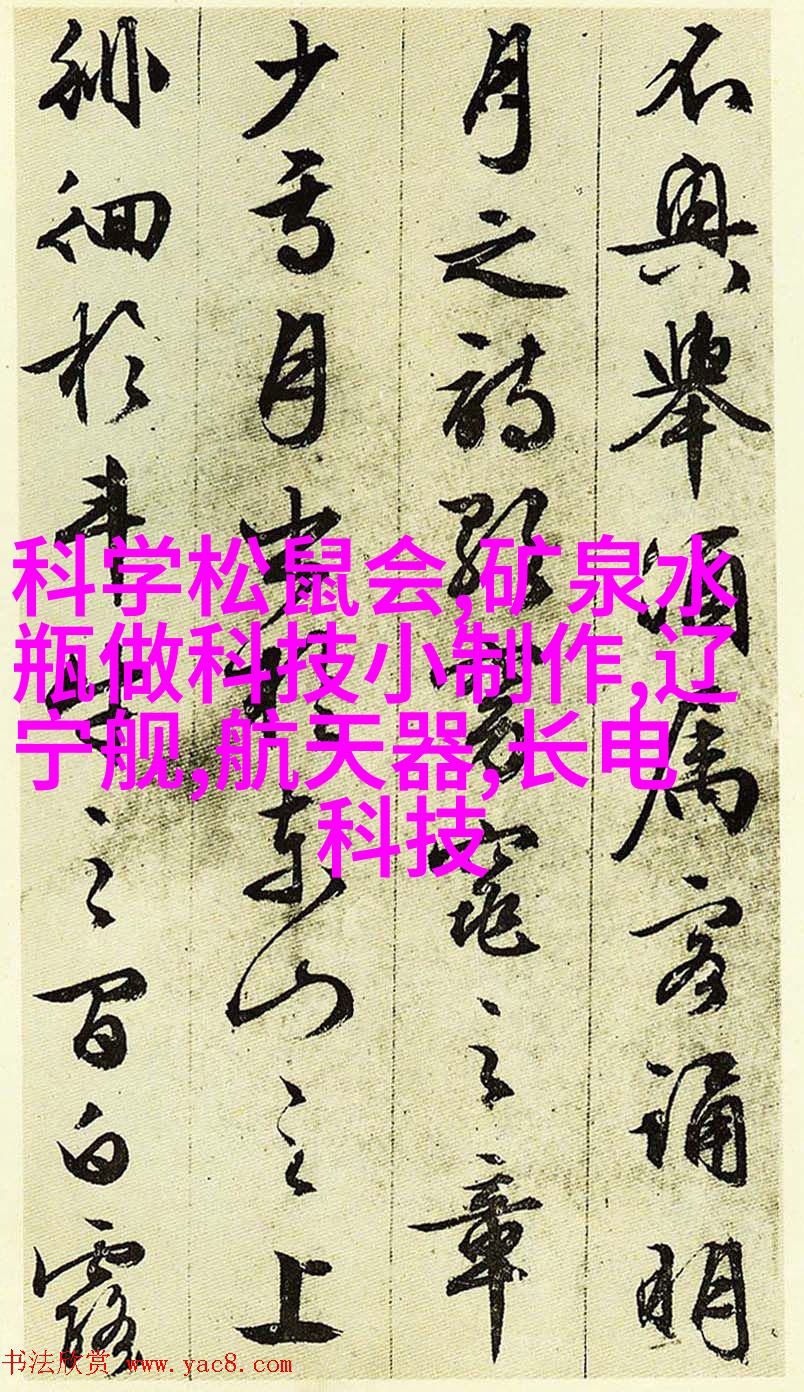 不興舉酒属客誦明
月之詩歌窈窕之章
少焉月出於東山之上
徘徊於斗牛之間白露
科学松鼠会,矿泉水
瓶做科技小制作,辽
宁舰,航天器,长电
科技
书法欣赏 www.yac8.com